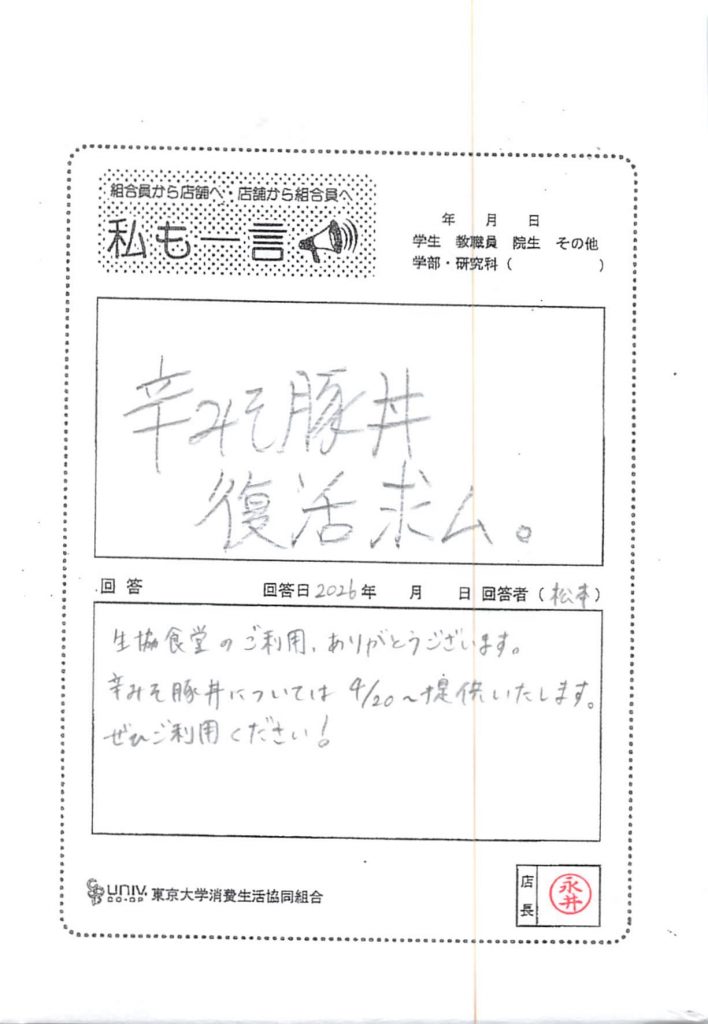 組合員から店舗へ・店舗から組合員へ
私も一言
年 月 日
学生 教職員 院生 その他
学部・研究科（ ）
辛みそ豚丼
復活求ム。
回答 回答日2026年 月 日 回答者（松本）
生協食堂のご利用、ありがとうございます。
辛みそ豚丼については 4/20～提供いたします。
ぜひご利用ください！
UNIV. CO-OP 東京大学消費生活協同組合
店長 永井